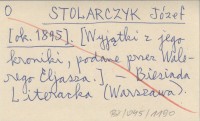 O STOLARCZYK Józef
[ok. 1895]. [Wyjątki z jego
kroniki, podane przez Wale-
rego Eljasza.] – Biesiada
Literacka (Warszawa).